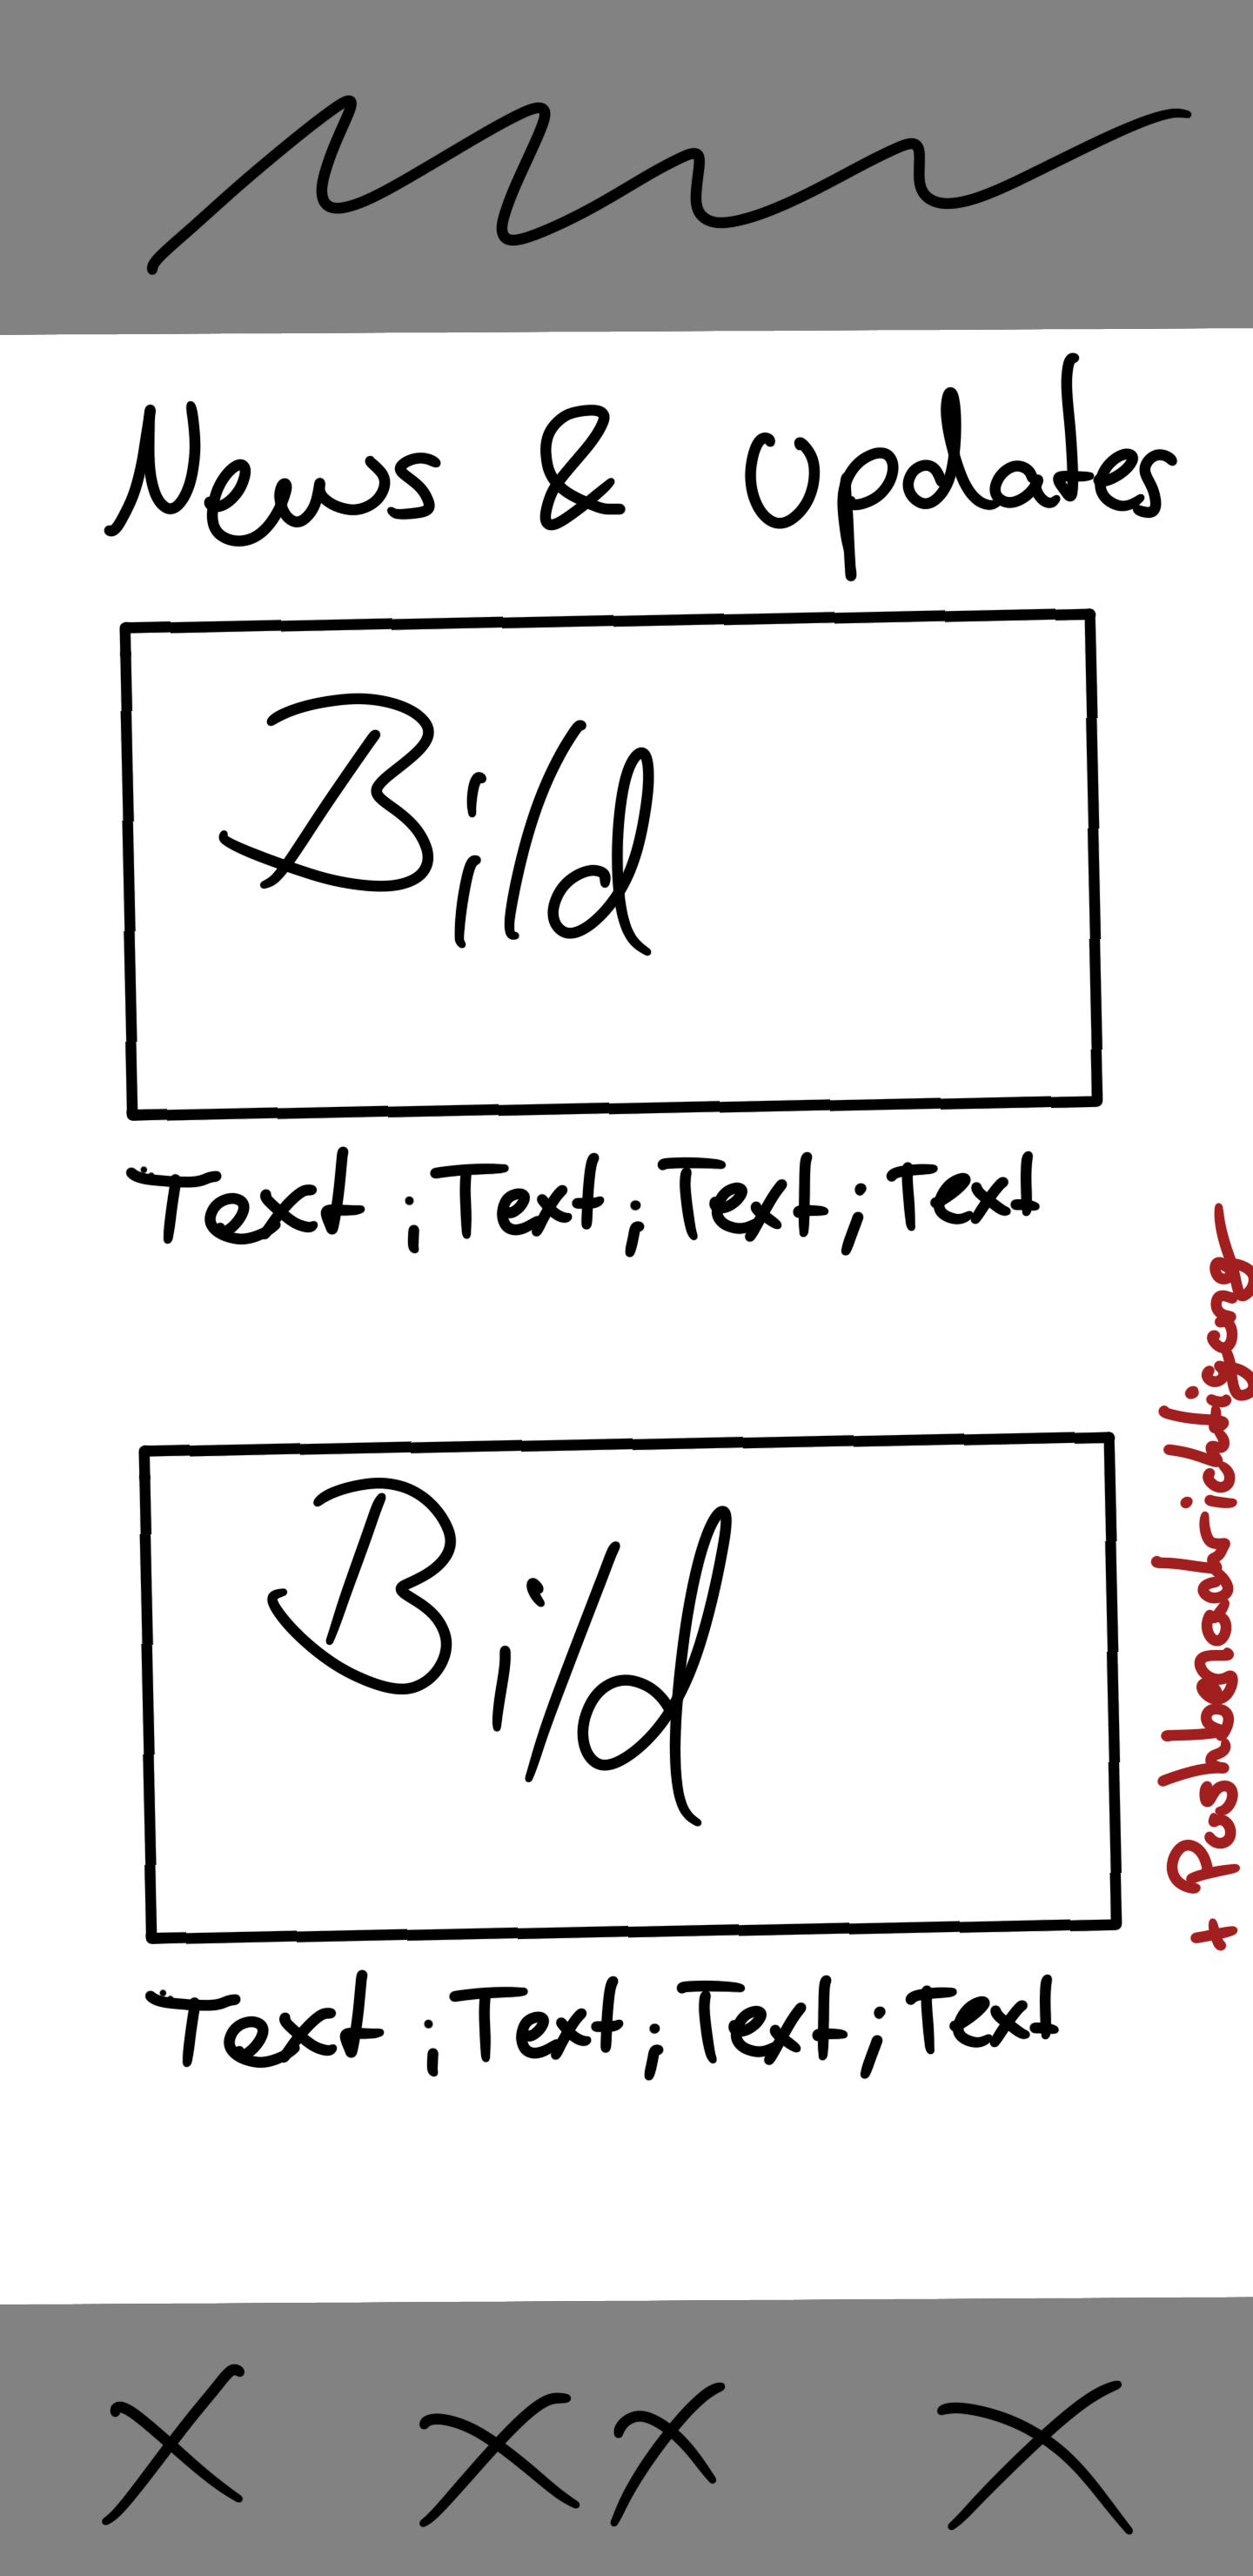 News & Updates
Bild
Text ; Text ; Text ; Text
Bild
Text ; Text ; Text ; Text
+ Pushbenachrichtigung